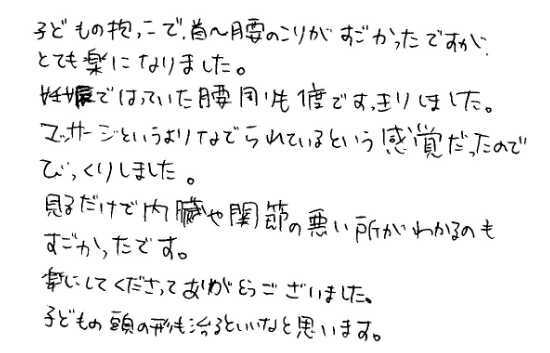 子どもの抱っこで、首〜腰のこりがすごかったですが、
とても楽になりました。
妊娠ではっていた腰周りも1度ですっきりしました。
マッサージというよりなでられているという感覚だったので
びっくりしました。
見るだけで内臓や関節の悪い所がわかるのも
すごかったです。
楽にしてくださってありがとうございました。
子どもの頭の形も治るといいなと思います。